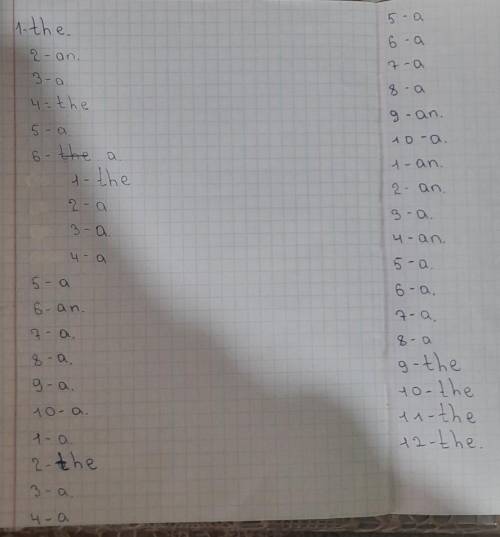 1-the.
2-an.
3-a
4-the
5-a.
6-the a.
1-the
2-a
3-a.
4-a
5-a
6-an.
7-a.
8-a.
9-a.
10-a.
1-a.
2-the
3-a.
4-a
5-a
6-a
7-a
8-a
9-an.
10-a.
1-an.
2-an.
3-a.
4-an.
5-a.
6-a.
7-a.
8-a
9-the
10-the
11-the
12-the.